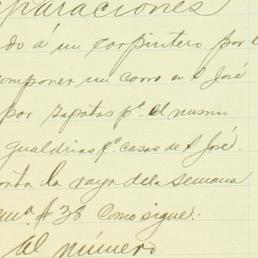 eparaciones
do á un carpintero por
componer un carro en S José
por zapatas pª. el mismo
gualdrias pª casas de S José.
onta la raya de la semana
emª. # 38 como sigue.
Al número